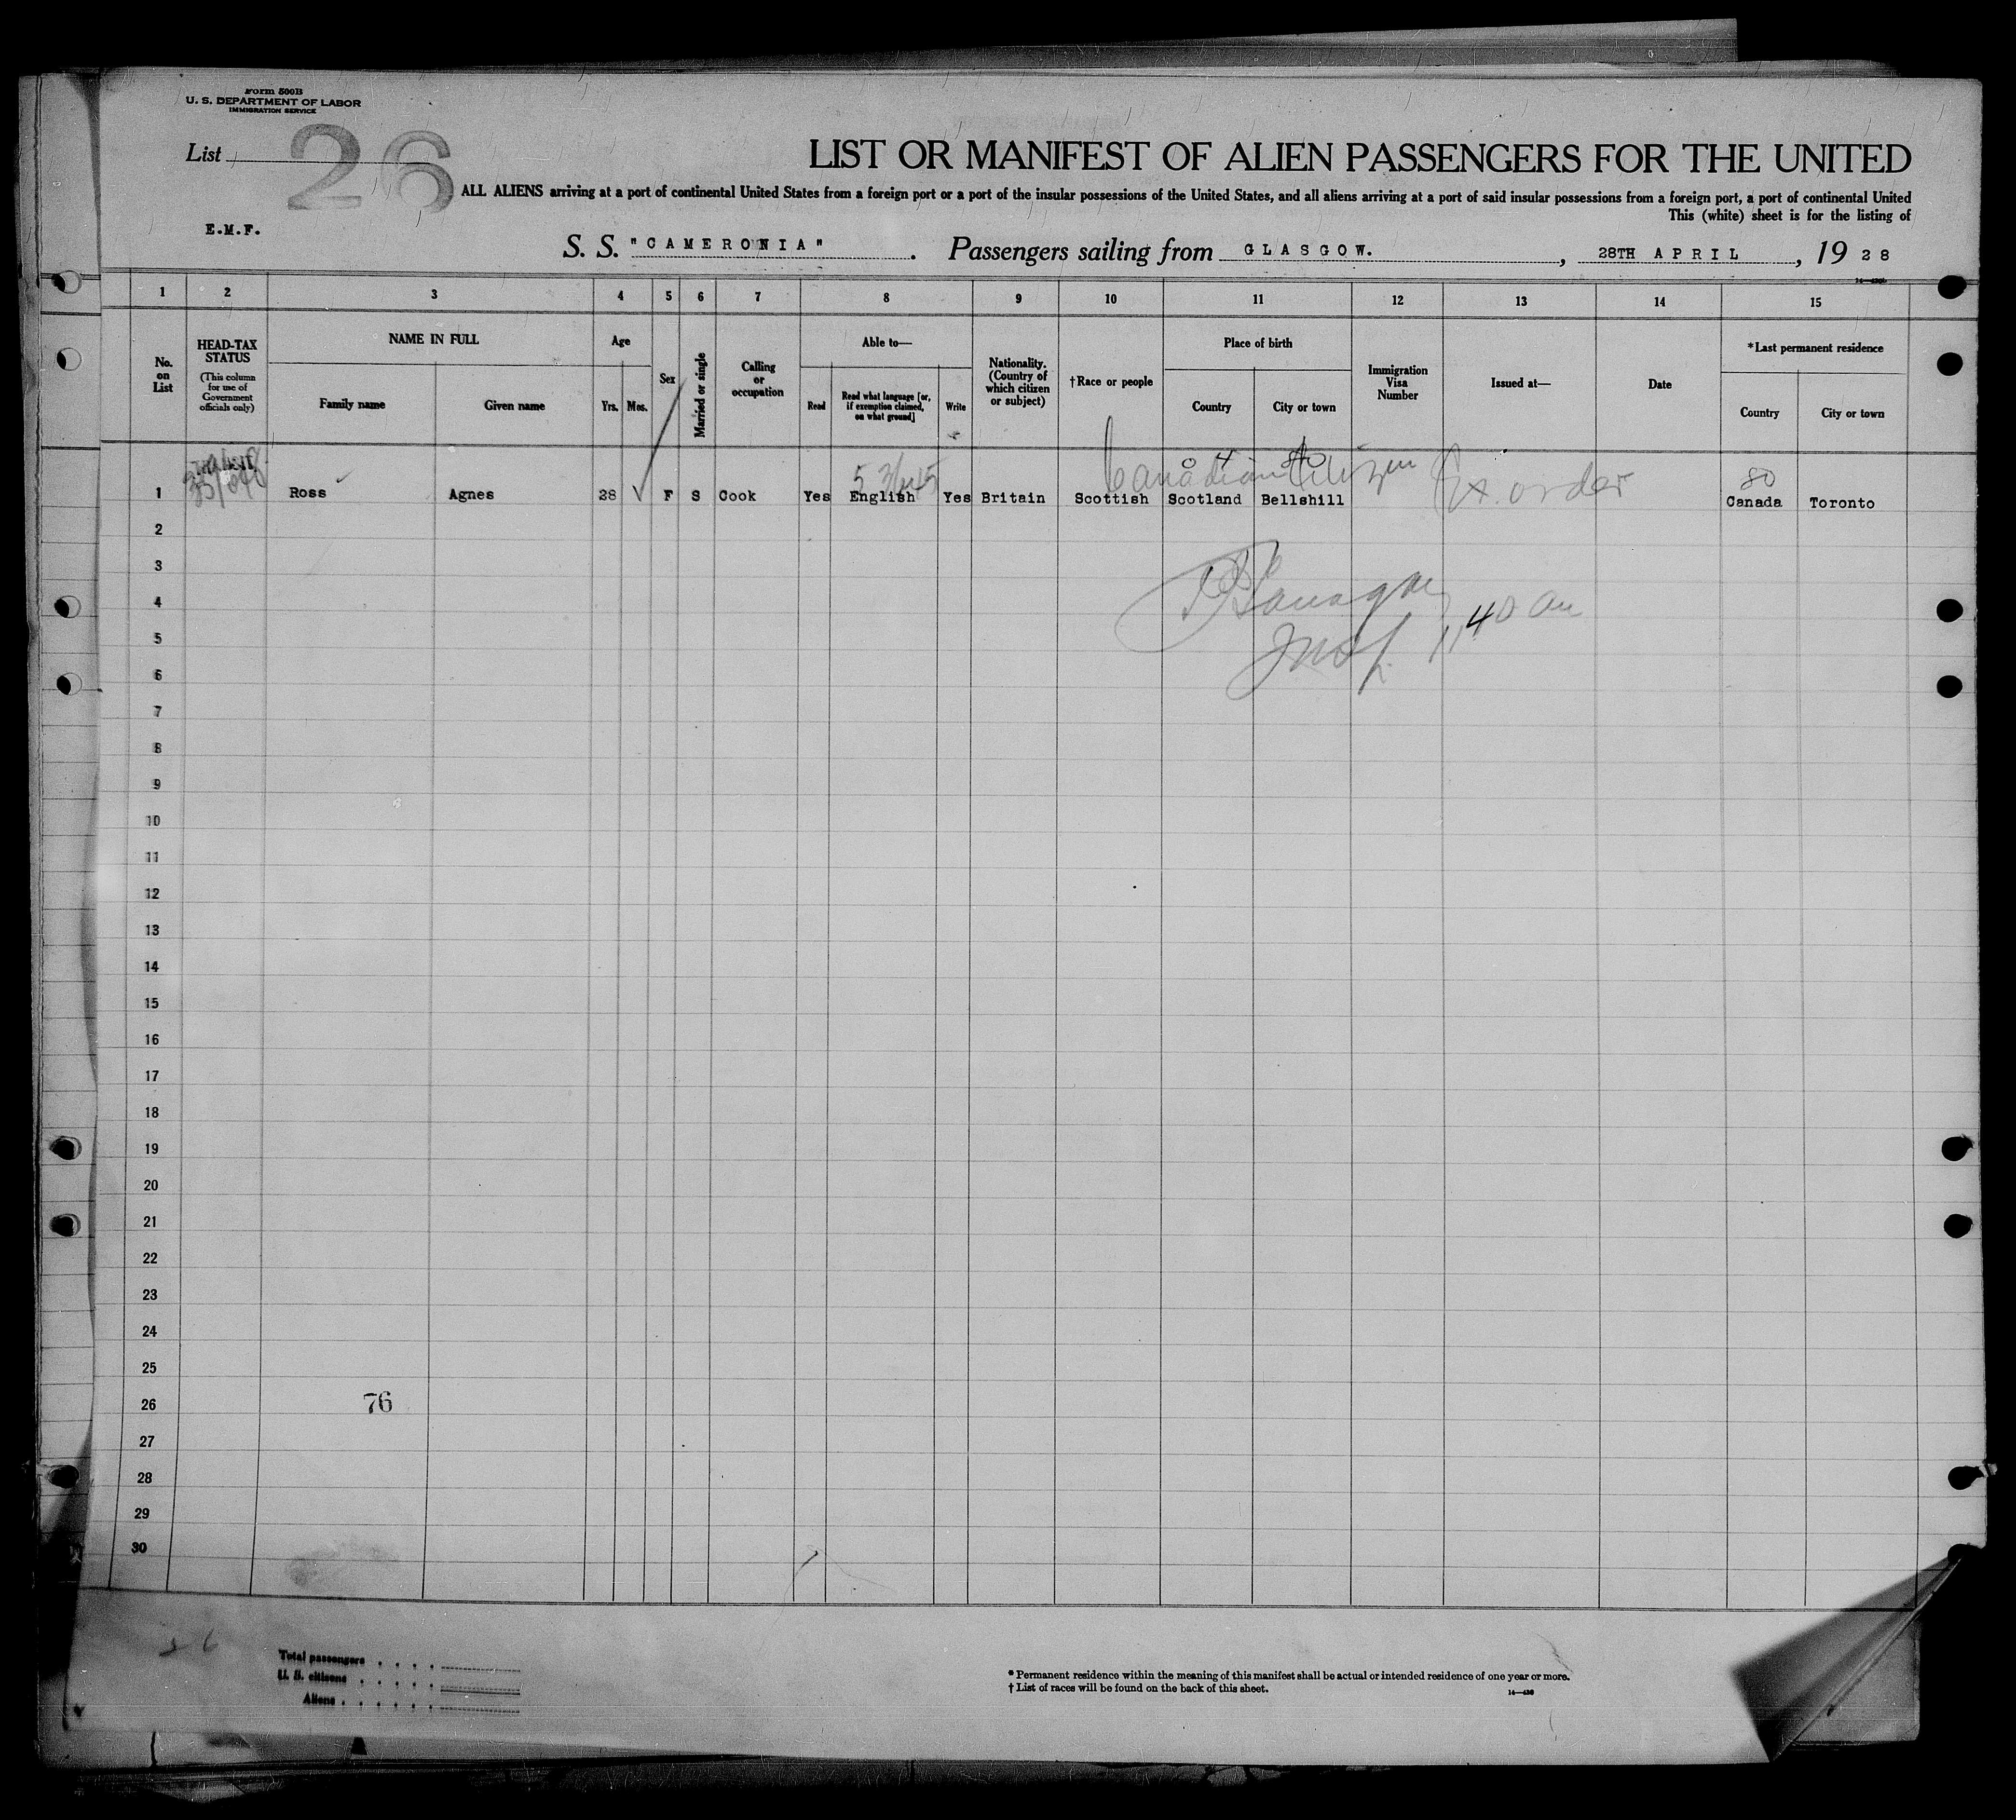 Form 500B
U. S. DEPARTMENT OF LABOR
IMMIGRATION SERVICE
List 26
LIST OR MANIFEST OF ALIEN PASSENGERS FOR THE UNITED
ALL ALIENS arriving at a port of continental United States from a foreign port or a port of the insular possessions of the United States, and all aliens arriving at a port of said insular possessions from a foreign port, a port of continental United
This (white) sheet is for the listing of
E.M.F.
S. S. "CAMERONIA". Passengers sailing from GLASGOW., 28TH APRIL, 1928
1 2 3 4 5 6 7 8 9 10 11 12 13 14 15
No. on List
HEAD-TAX STATUS
(This column for use of Government officials only)
NAME IN FULL
Family name Given name
Age
Yrs. Mos.
Sex
Married or single
Calling or occupation
Able to—
Read
Read what language [or, if exemption claimed, on what ground]
Write
Nationality. (Country of which citizen or subject)
†Race or people
Place of birth
Country City or town
Immigration Visa Number
Issued at—
Date
*Last permanent residence
Country City or town
Canadian Citizen Ex. order
80
1 Ross Agnes 28 F S Cook Yes English Yes Britain Scottish Scotland Bellshill Canada Toronto
2
3
4
5
11 40 am
6
7
8
9
10
11
12
13
14
15
16
17
18
19
20
21
22
23
24
25
26 76
27
28
29
30
26
Total passengers
U. S. citizens
Aliens
* Permanent residence within the meaning of this manifest shall be actual or intended residence of one year or more.
† List of races will be found on the back of this sheet.
14—430